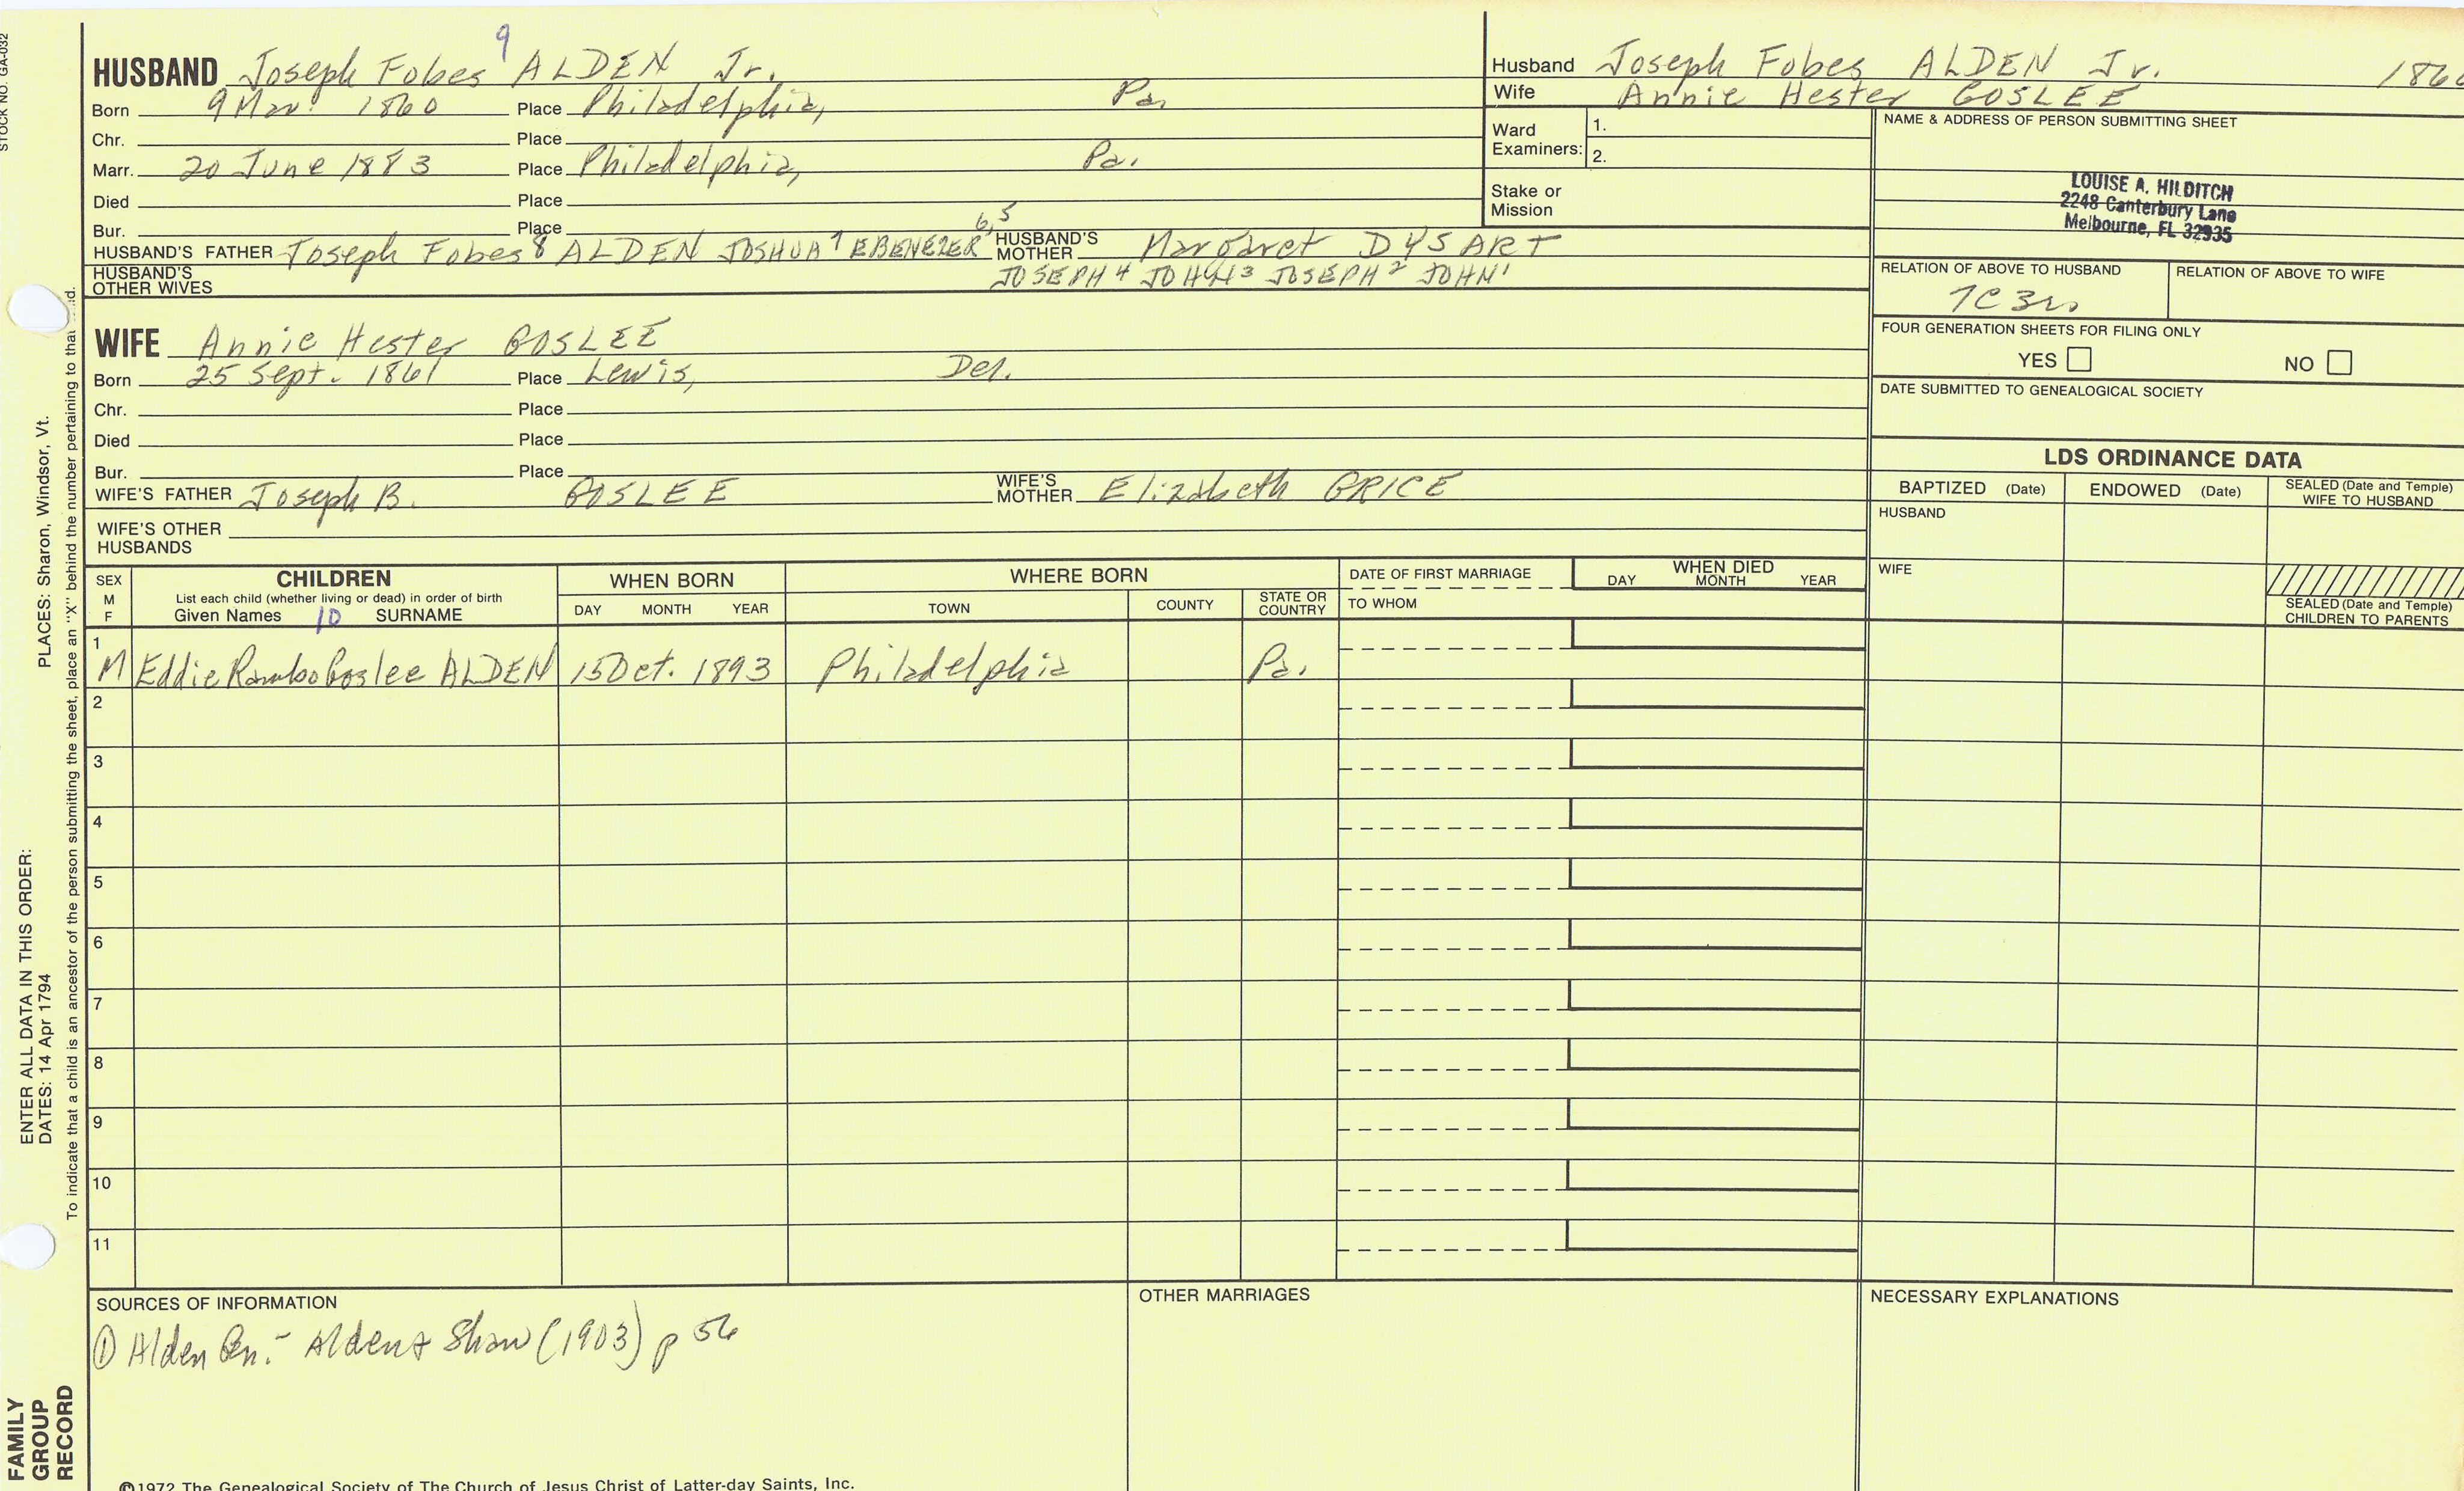 STOCK NO. GA-032
PLACES: Sharon, Windsor, Vt.
ENTER ALL DATA IN THIS ORDER:
DATES: 14 Apr 1794
To indicate that a child is an ancestor of the person submitting the sheet, place an "X" behind the number pertaining to that
FAMILY
GROUP
RECORD
9
HUSBAND Joseph Fobes ALDEN Jr.
Born 9 Mar. 1860 Place Philadelphia, Pa.
Chr. Place
Marr. 20 June 1883 Place Philadelphia, Pa.
Died Place
Bur. Place
HUSBAND'S FATHER Joseph Fobes 8 ALDEN JOSHUA 7 EBENEZER 6,5 HUSBAND'S MOTHER Margaret DYSART
HUSBAND'S OTHER WIVES JOSEPH 4 JOHN 3 JOSEPH 2 JOHN 1
WIFE Annie Hester GOSLEE
Born 25 Sept. 1861 Place Lewis, Del.
Chr. Place
Died Place
Bur. Place
WIFE'S FATHER Joseph B. GOSLEE WIFE'S MOTHER Elizabeth GRICE
WIFE'S OTHER HUSBANDS
Husband Joseph Fobes ALDEN Jr.
Wife Annie Hester GOSLEE
Ward Examiners: 1.
2.
Stake or Mission
NAME & ADDRESS OF PERSON SUBMITTING SHEET
LOUISE A. HILDITCH
2248 Canterbury Lane
Melbourne, FL 32935
RELATION OF ABOVE TO HUSBAND RELATION OF ABOVE TO WIFE
7C 3r
FOUR GENERATION SHEETS FOR FILING ONLY
YES NO
DATE SUBMITTED TO GENEALOGICAL SOCIETY
LDS ORDINANCE DATA
BAPTIZED (Date) ENDOWED (Date) SEALED (Date and Temple) WIFE TO HUSBAND
HUSBAND
WIFE
SEALED (Date and Temple) CHILDREN TO PARENTS
SEX M F CHILDREN WHEN BORN WHERE BORN DATE OF FIRST MARRIAGE WHEN DIED
List each child (whether living or dead) in order of birth
Given Names 10 SURNAME DAY MONTH YEAR TOWN COUNTY STATE OR COUNTRY TO WHOM DAY MONTH YEAR
1
M Eddie Rambo Goslee ALDEN 15 Oct. 1893 Philadelphia Pa.
2
3
4
5
6
7
8
9
10
11
SOURCES OF INFORMATION
① Alden Gen. - Alden & Shaw (1903) p 56
OTHER MARRIAGES
NECESSARY EXPLANATIONS
©1972 The Genealogical Society of The Church of Jesus Christ of Latter-day Saints, Inc.